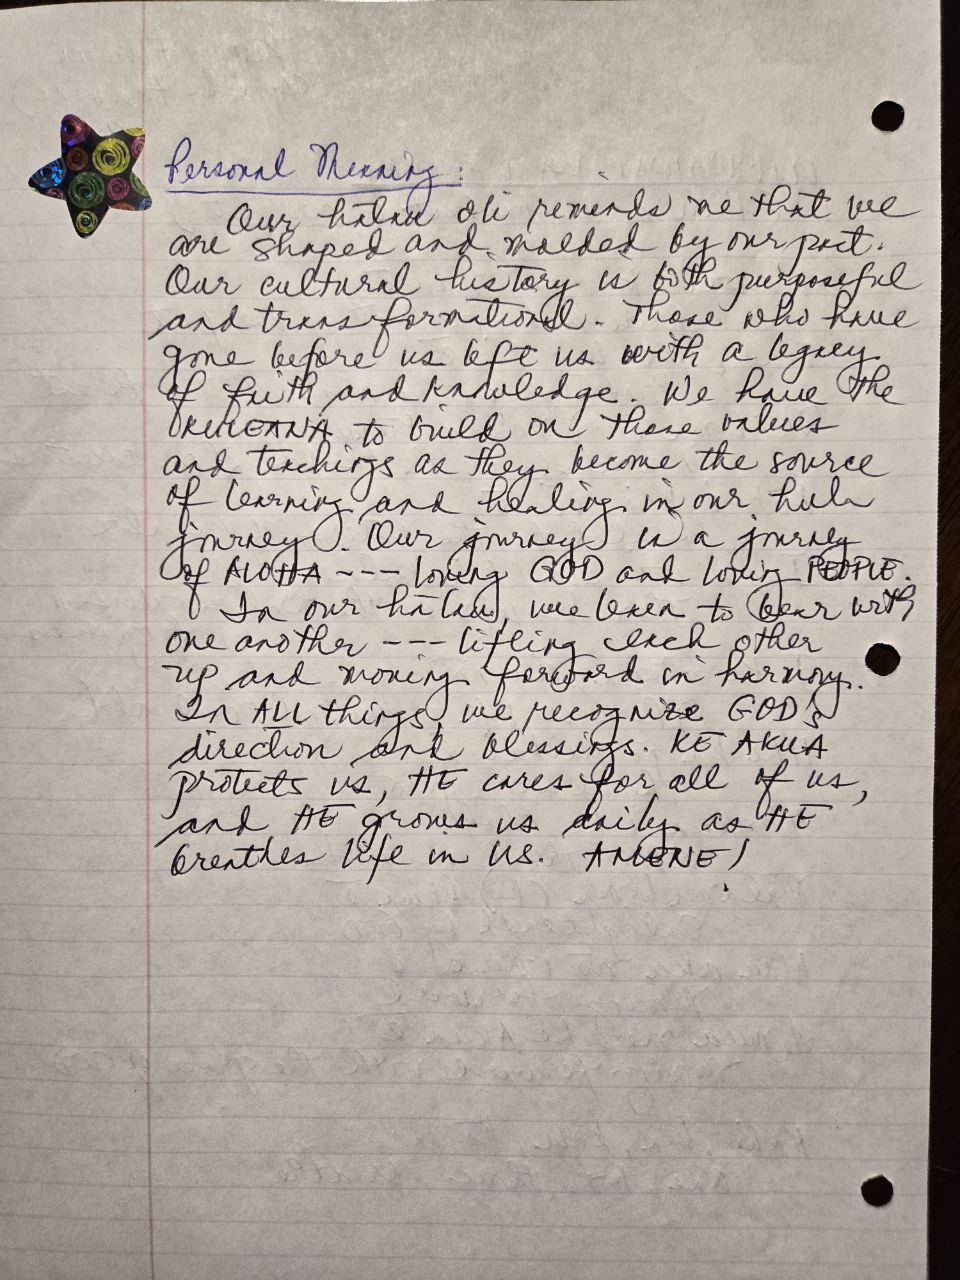 Personal Meaning:
Our hālau oli reminds me that we
are shaped and molded by our past.
Our cultural history is both purposeful
and transformational. Those who have
gone before us left us with a legacy
of faith and knowledge. We have the
KULEANA to build on those values
and teachings as they become the source
of learning and healing in our hula
journey. Our journey is a journey
of ALOHA --- loving GOD and loving PEOPLE.
In our hālau, we learn to bear with
one another --- lifting each other
up and moving forward in harmony.
In ALL things, we recognize GOD's
direction and blessings. KE AKUA
protects us, HE cares for all of us,
and HE grows us daily as HE
breathes life in us. AMENE!